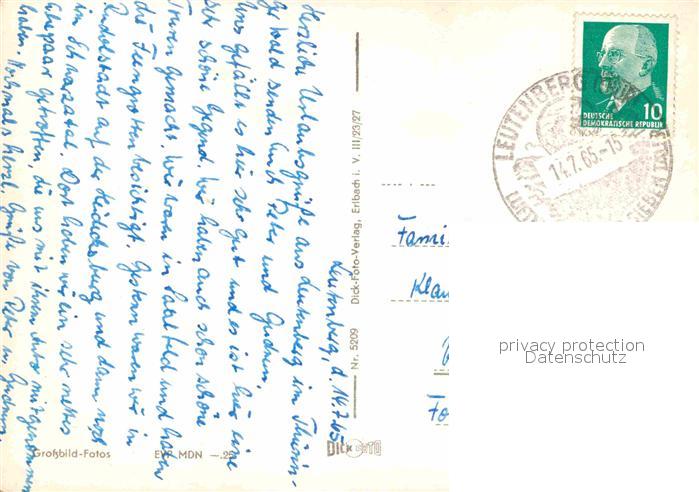 Leutenberg, d. 14.7.65.
Herzliche Urlaubsgrüße aus Leutenberg im Thürin-
ger Wald senden Euch Peter und Gudrun.
Uns gefällt es hier sehr gut und es ist hier eine
sehr schöne Gegend. Wir haben auch schon schöne
Touren gemacht. Wir waren in Saalfeld und haben
die Feengrotten besichtigt. Gestern waren wir in
Rudolstadt auf der Heidecksburg und dann noch
im Schwarzatal. Dort haben wir ein sehr nettes
Ehepaar getroffen, die uns mit ihrem Auto mitgenommen
haben. Nochmals herzl. Grüße von Peter u. Gudrun.
Großbild-Fotos
EVP MDN —.25
Nr. 5209 Dick-Foto-Verlag, Erlbach i. V. III/23/27
DICK FOTO
LEUTENBERG (THÜR
14.7.65.-15
DEUTSCHE
DEMOKRATISCHE REPUBLIK
10
Fami
Klau
Fo
privacy protection
Datenschutz